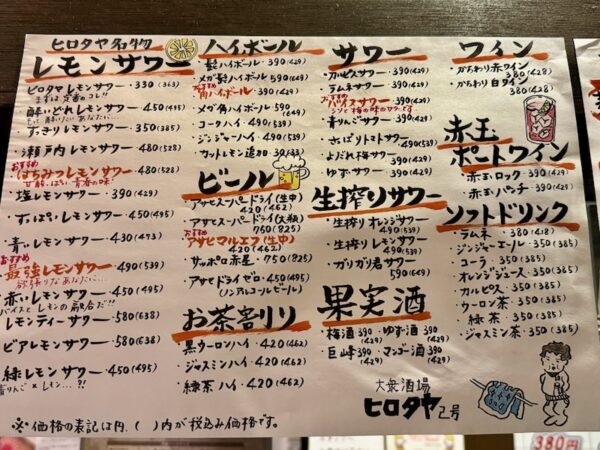 ヒロタヤ名物
レモンサワー
ヒロタヤレモンサワー・330(363)
まずは定番のコレ!!
酔いどれレモンサワー・450(495)
すっきりレモンサワー
瀬戸内レモンサワー・480(528)
おすすめ
はちみつレモンサワー・480(528)
甘酸っぱい青春の味!
塩レモンサワー・390(429)
すっぱいレモンサワー・450(495)
青いレモンサワー・430(473)
おすすめ
最強レモンサワー・490(539)
欲張りなあなたに…
赤いレモンサワー・450(495)
バイスとレモンの融合だ!!
レモンティーサワー・580(638)
ビアレモンサワー・580(638)
緑レモンサワー・450(495)
青りんご×レモン…?!
ハイボール
・髭ハイボール・390(429)
・メガ髭ハイボール590(649)
おすすめ
角ハイボール・390(429)
・メガ角ハイボール590(649)
・コークハイ・490(539)
・ジンジャーハイ・490(539)
・カットレモン追加30(33)
ビール
・アサヒスーパードライ(生中)
420(462)
・アサヒスーパードライ(大瓶)
750(825)
おすすめ
アサヒマルエフ(生中)
420(462)
・サッポロ赤星・750(825)
・アサヒドライゼロ・450(495)
(ノンアルコールビール)
お茶割り
・黒ウーロンハイ・420(462)
・ジャスミンハイ・420(462)
・緑茶ハイ・420(462)
サワー
・カルピスサワー・390(429)
・ラムネサワー・390(429)
おすすめ
バイスサワー・390(429)
シソと梅の味のサワーです
・青りんごサワー・390(429)
・さっぱりトマトサワー
490(539)
・よだれ梅サワー・390(429)
・ゆずサワー・390(429)
生搾りサワー
・生搾りオレンジサワー
490(539)
・生搾りレモンサワー
490(539)
・ガリガリ君サワー
590(649)
果実酒
・梅酒390(429)・ゆず酒390(429)
・巨峰390(429)・マンゴー酒390(429)
ワイン
・かちわり赤ワイン
380(428)
・かちわり白ワイン
380(428)
赤玉
ポートワイン
・赤玉ロック・390(429)
・赤玉パンチ・390(429)
ソフトドリンク
・ラムネ・380(418)
・ジンジャーエール・350(385)
・コーラ・350(385)
・オレンジジュース・350(385)
・カルピス・350(385)
・ウーロン茶・350(385)
・緑茶・350(385)
・ジャスミン茶・350(385)
大衆酒場
ヒロタヤ2号
※価格の表記は円、( )内が税込み価格です。
380円